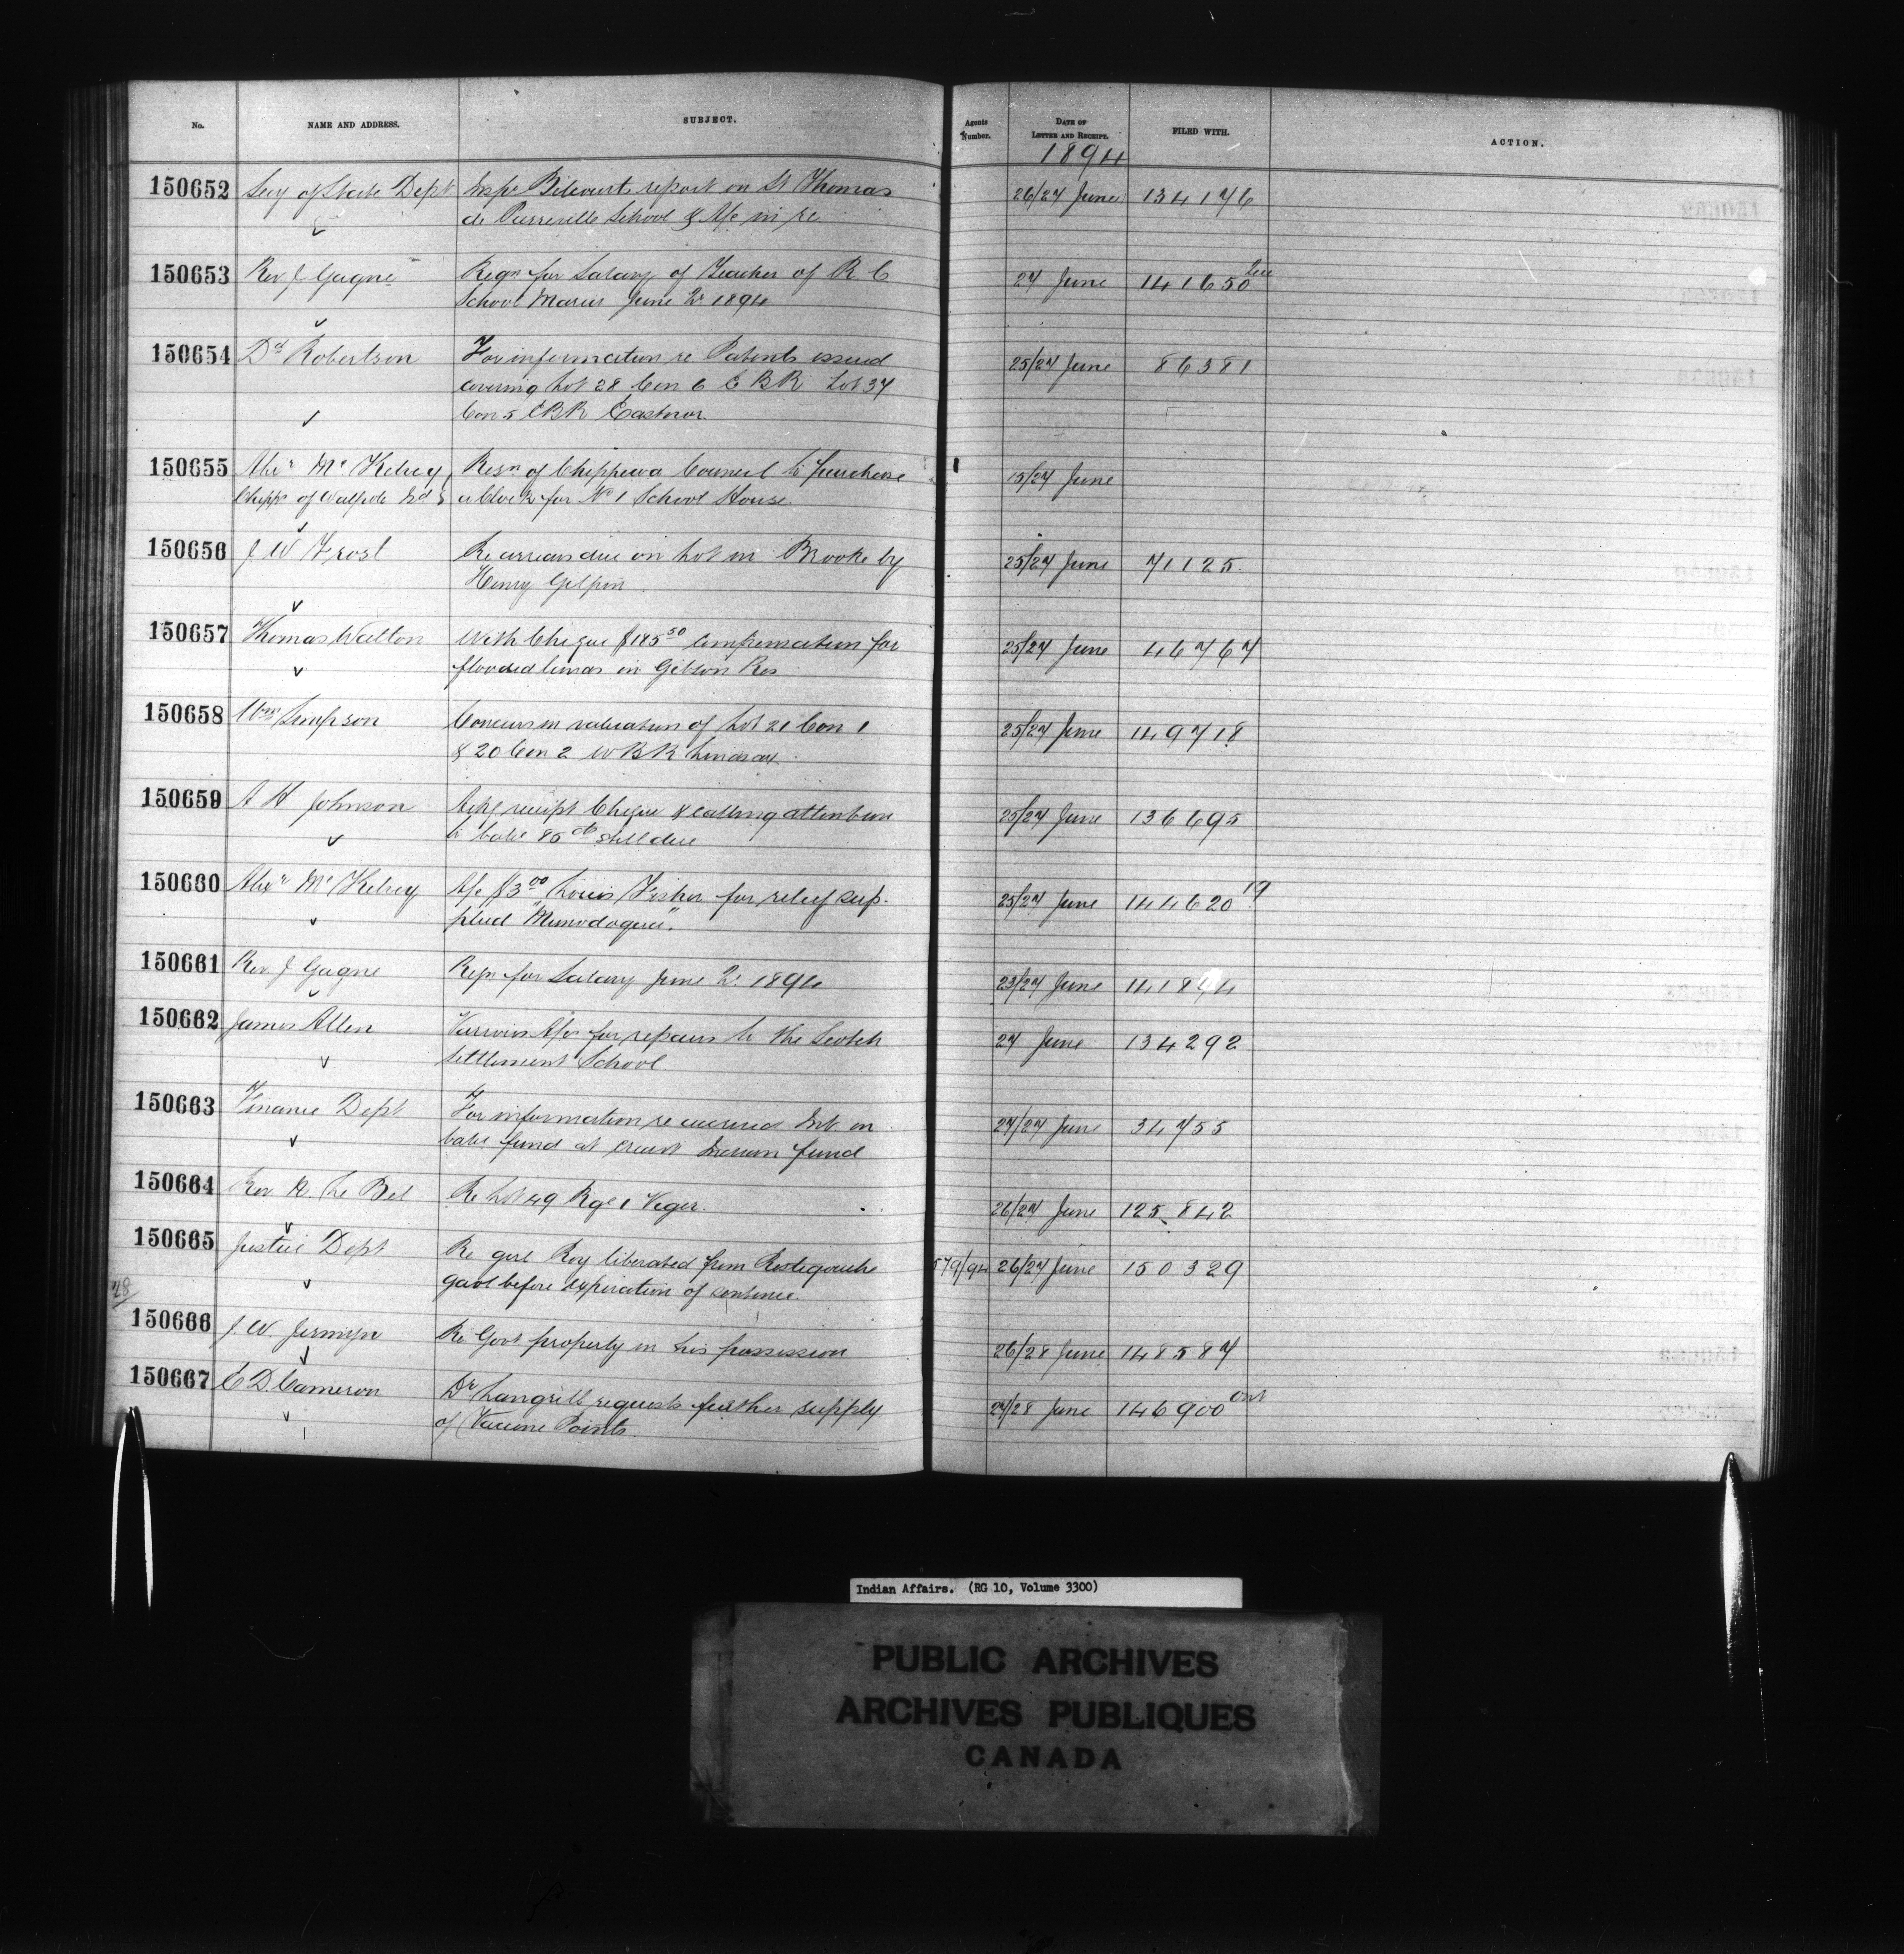 No. NAME AND ADDRESS. SUBJECT. Agents Number. DATE OF LETTER AND RECEIPT. FILED WITH. ACTION.
1894
150652 Secy of State Dept Inspr report on St Thomas 26/27 June 134176
de Pierreville School & A/c in re
150653 Rev J Gagné Reqn for Salary of Teacher of R C 27 June 141650 Que
School Maria June Qr 1894
150654 Dd Robertson For information re Patents issued 25/27 June 86381
covering Lot 28 Con 6 E B R Lot 37
Con 5 E B R Eastnor
150655 Alexr McKelvey Resn of Chippewa Council to purchase 15/27 June
Chipps of Walpole Isd a Clock for No 1 School House.
150656 J W Frost Re arrears due on Lot in Brooke by 25/27 June 71125
Henry Gilpin
150657 Thomas Walton With Cheque $185 50 compensation for 25/27 June 46767
flooded lands in Gibson Res
150658 Wm Simpson Concurs in valuation of Lot 21 Con 1 25/27 June 149718
& 20 Con 2 W B R Lindsay
150659 A H Johnson Ackg receipt Cheque & calling attention 25/27 June 136695
to balce 85 cts still due
150660 Alexr McKelvey A/c $3 00 Louis Fisher for relief sup- 25/27 June 144620 19
plied
150661 Rev J Gagne Reqn for Salary June Qr 1894 23/27 June
150662 James Allen Various A/cs for repairs to the Scotch 27 June 134292
Settlement School
150663 Finance Dept For information re accrued Int. on 27/27 June 34755
balce fund at credit Indian fund
150664 Rev Le Bel Re Lot 49 Rge 1 Viger. 26/27 June 125,842
150665 Justice Dept Re girl Roy liberated from Restigouche 579/94 26/27 June 150329
gaol before expiration of sentence.
28
150666 J. W. Jermyn Re Govt property in his possession 26/28 June 148587
150667 E D. Cameron Dr. Langrill requests further supply 27/28 June 146900 Ont
of Vaccine Points.
Indian Affairs. (RG 10, Volume 3300)
PUBLIC ARCHIVES
ARCHIVES PUBLIQUES
CANADA